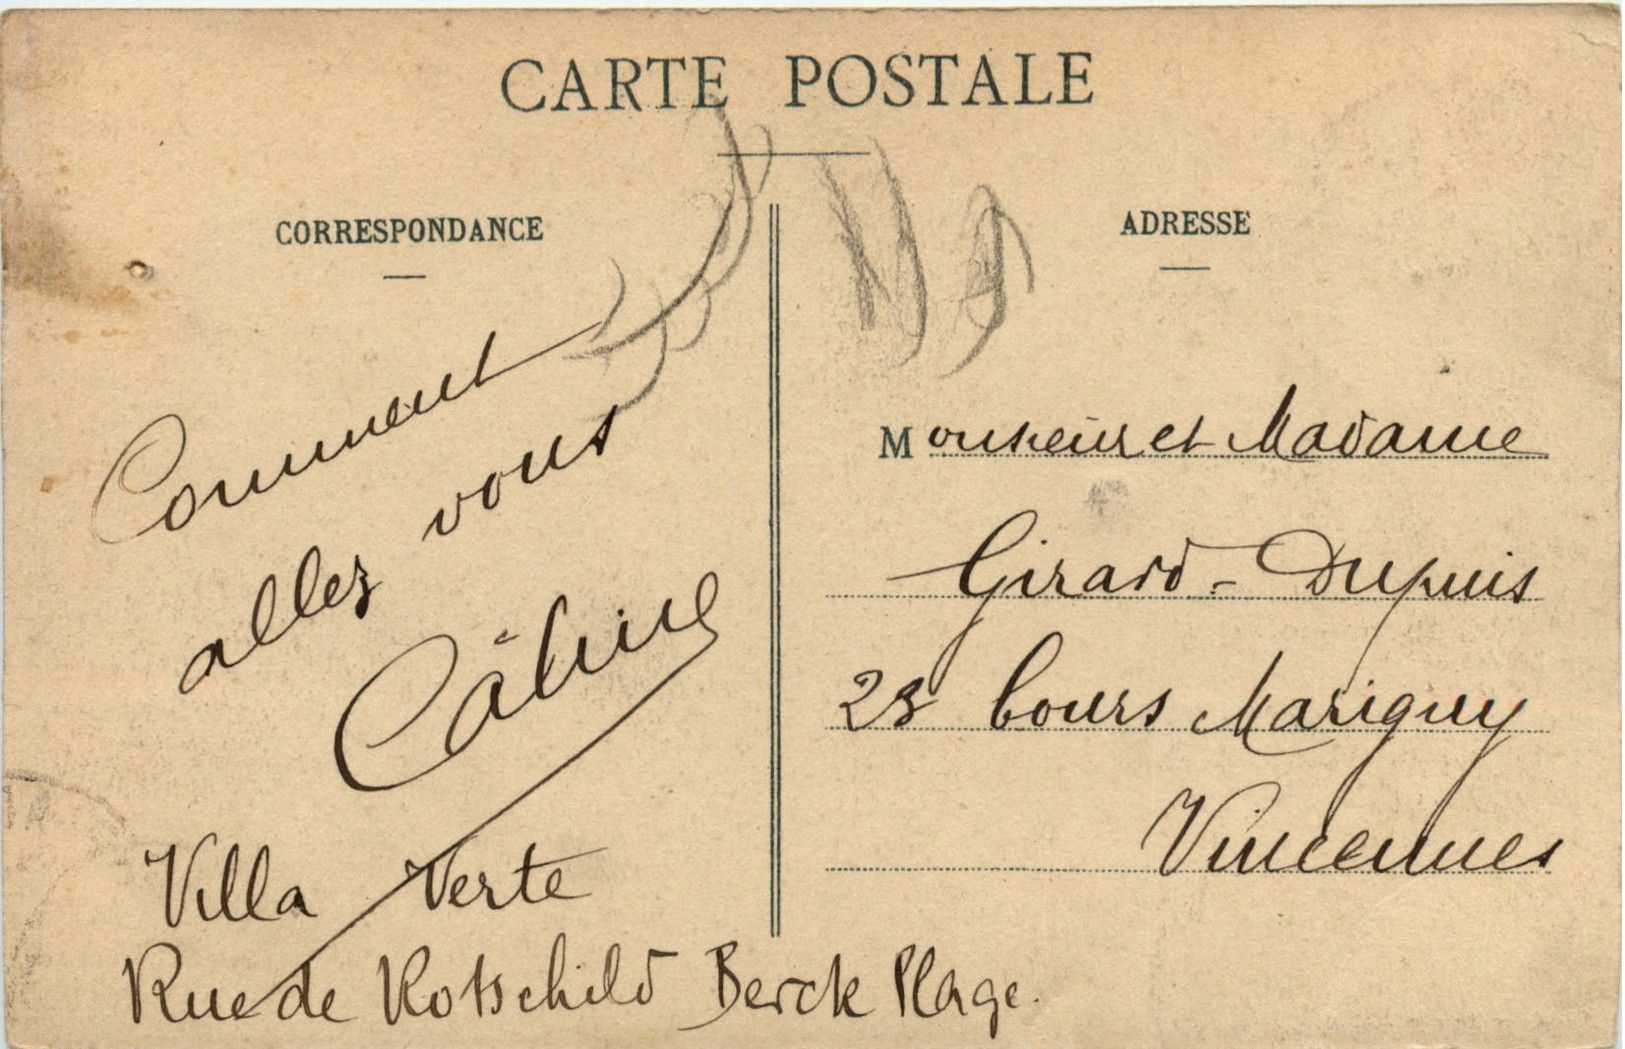 CARTE POSTALE
CORRESPONDANCE
Comment
allez vous
Villa Verte
Rue de Rotschild Berck Plage.
ADRESSE
Monsieur et Madame
Girard-Dupuis
23 Cours Marigny
Vincennes